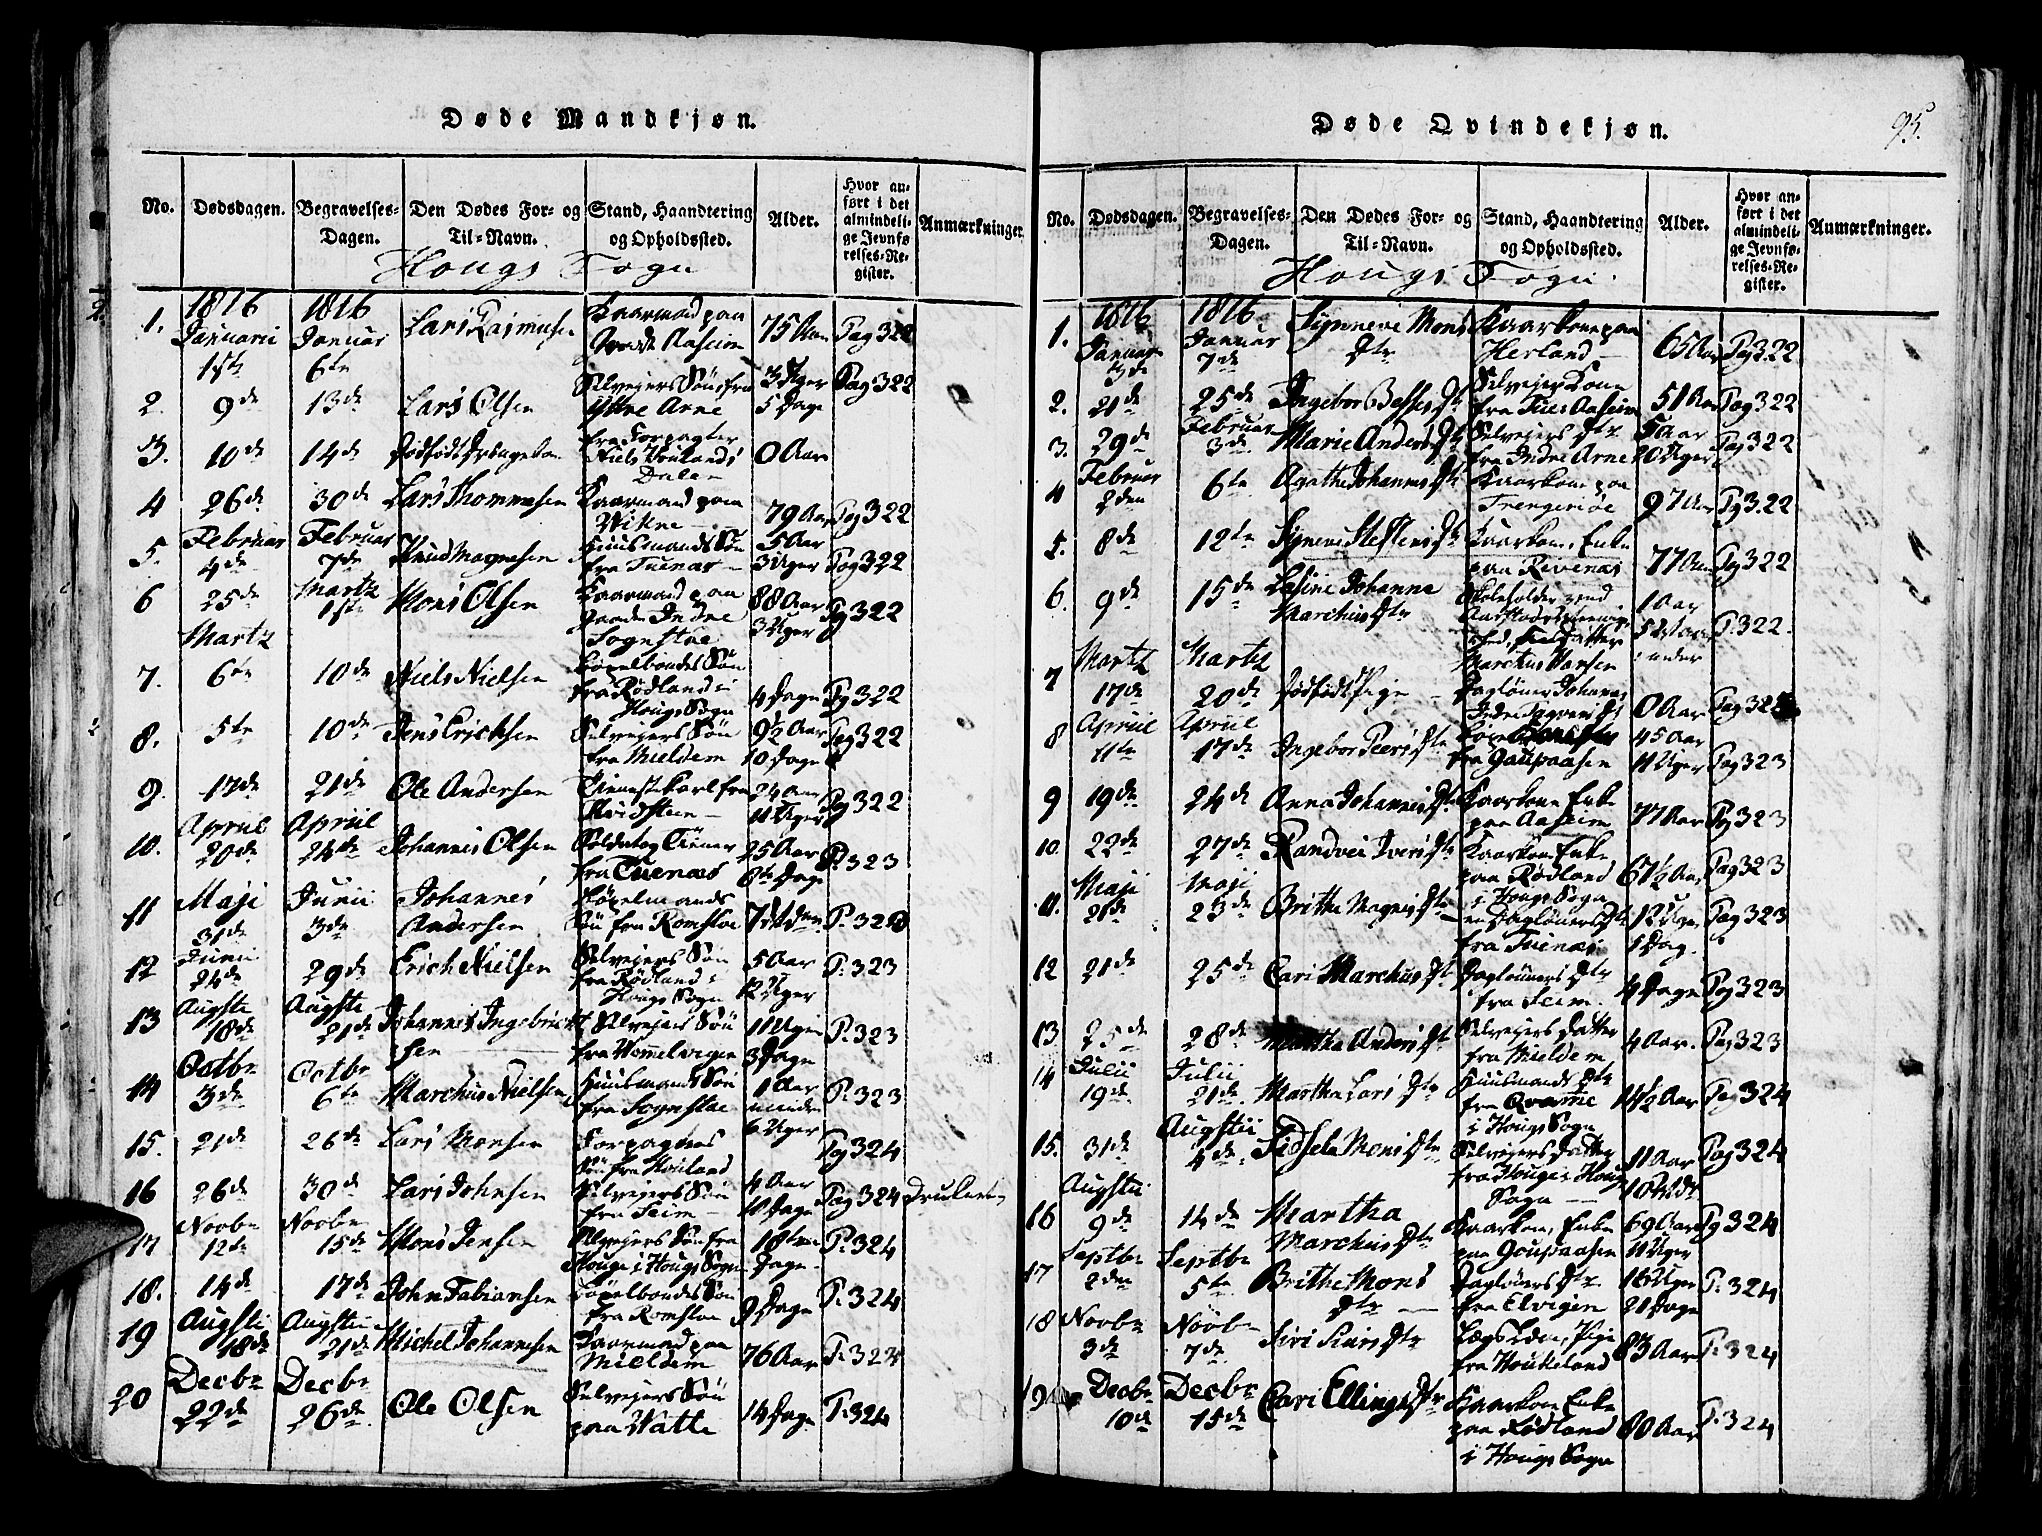 Døde Mandkjøn.
No. Dødsdagen. Begravelses-Dagen. Den Dødes For- og Til-Navn. Stand, Haandtering og Opholdssted. Alder. Hvor anført i det almindelige Jevnførelses-Register. Anmærkninger.
Hougs Sogn
1. 1816 Januarii 1ste 1816 Januar 6te Lars Rasmusen Kaarmand paa Aaseim 75 Aar Pag 322
2. 9de 13de Lars Olsen Selvejers Søn fra Yttre Arne 3 Uger 5 Dage Pag 322
3. 10de 14de fra Forpagter Niels Houlands Dale 0 Aar
4 26de 30de Lars Thommesen Kaarmand paa Wikne 79 Aar Pag 322
5. Februar 4de Februar 7de Knud Magnesen Huusmands Søn fra Tuenæs 5 Aar 3 Uger Pag 322
6 25de Martz 1ste Mons Olsen Kaarmand paa Gaarden Indre Sognstøe 88 Aar 3 Uger Pg 322
7. Martz 6te 10de Niels Nielsen Søn fra Rødland i Hougs Sogn 4 Dage Pg 322
8. 5te 10de Jens Erichsen Selvejers Søn fra Mieldem 9½ Aar 10 Dage Pag 322
9. 17de 21de Ole Andersen Tienest Karl fra 24 Aar 11 Uger Pg 322
10. Apriil 20de Apriil 24de Johannes Olsen Soldat og Tiener fra Tuenæs 25 Aar Dage P. 323
11 Maji 31de Junii 3de Johannes Andersen Søn fra Romsloe P. 323
12 Junii 24de 29de Erich Nielsen Selvejers Søn fra Rødland i Hougs Sogn 5 Aar 12 Uger P. 323
13 Augsti 18de Augsti 21de Johannes Ingebrictsen Selvejers Søn fra Hommelvigen 11 Uger 3 Dage P. 323
14 Octbr 3de Octbr 6te Marchus Nielsen Huusmands Søn fra Sognstoe 1 Aar mindre 6 Uger P. 323
15. 21de 26de Lars Monsen Søn fra Houland Pag 324
16 26de 30de Lars Johnsen Selvejers Søn fra Seim 4 Aar 10 Dage Pag 324
17 Novbr 12te Novbr 15de Mons Jensen Selvejers Søn fra Houge i Hougs Sogn Dage P. 324
18. 14de 17de John Fabiansen Søn fra Romsloe 9 Dage P. 324
19 Augsti 18de Augstii 21de Michel Johannesen Kaarmand paa Mieldem 76 Aar P. 324
20 Decbr 22de Decbr 26de Ole Olsen Selvejers Søn paa Watle 14 Dage P. 324
Døde Qvindekjøn.
95.
No. Dødsdagen. Begravelses-Dagen. Den Dødes For- og Til-Navn. Stand, Haandtering og Opholdssted. Alder. Hvor anført i det almindelige Jevnførelses-Register. Anmærkninger.
Hougs Sogn.
1. 1816 Januar 3de 1816 Januar 7de Synneve Mons Dtr Kaarkone paa Herland 65 Aar Pg 322
2. 21de 25de Ingebor Dtr Selvejer Kone fra Aaseim 51 Aar Pag 322
3. 29de Februar 3de Marie Anders Dtr Selvejers Dtr fra Indre Arne 20 Uger Pag 322
4 Februar 2den 6te Agathe Johannes Dtr Kaarkone paa 97 Aar Pg 322
5. 8de 12te Synneve Steffens Dtr Kaarkone, Enke paa Revenæs 77 Aar Pag 322
6. 9de 15de Johanna Marchus Dtr Skoleholder Datter Marchus Hansen 1 Aar P. 322
7 Martz 17de Martz 20de Dødfødt Pige Dagløner Johannes 0 Aar Pag 323
8 Apriil 11te Apriil 17de Ingebor Peers Dtr fra Goupaasen 45 Aar 11 Uger Pag 323
9 19de 24de Anna Johannes Dtr Kaarkone Enke paa Aaseim 77 Aar Pg 323
10. 22de 27de Randvei Ivers Dtr Kaarkone Enke paa Rødland i Hougs Sogn 67½ Aar Pag 323
11. Maji 20de Maji 23de Brithe Magnes Dtr en Dagløners Dtr fra Tuenæs 12 Uger 5 Dag. Pag 323
12 21de 25de Cari Marchus Dtr Dagløners Dtr fra Seim. 4 Dage Pag 323
13 25de 28de Martha Anders Dtr Selvejers Datter fra Mieldem 4 Aar. Pag 323
14 Julii 19de Julii 21de Martha Lars Dtr Huusmands Dtr fra Qvamme i Hougs Sogn 14½ Aar Pag 324
15. 31de Augstii 4de Sidsela Mons Dtr Selvejers Datter fra Houge i Hougs Sogn 11 Aar Pag 324
16 Augstii 9de 14de Martha Marchus Dtr Kaarkone, Enke paa Goupaasen 69 Aar 11 Uger Pg 324
17 Septbr 2den Septbr 5te Brithe Mons Dtr Dagløners Dtr fra Elvigen 16 Uger 21 Dage P. 324
18 Novbr 3de Novbr 7de Siri Dtr Lægs Lem, Pige fra Houkeland 83 Aar P. 324
19 Decbr 10de Decbr 15de Cari Ellings Dtr Kaarkone Enke paa Rødland i Hougs Sogn 80 Aar P. 324